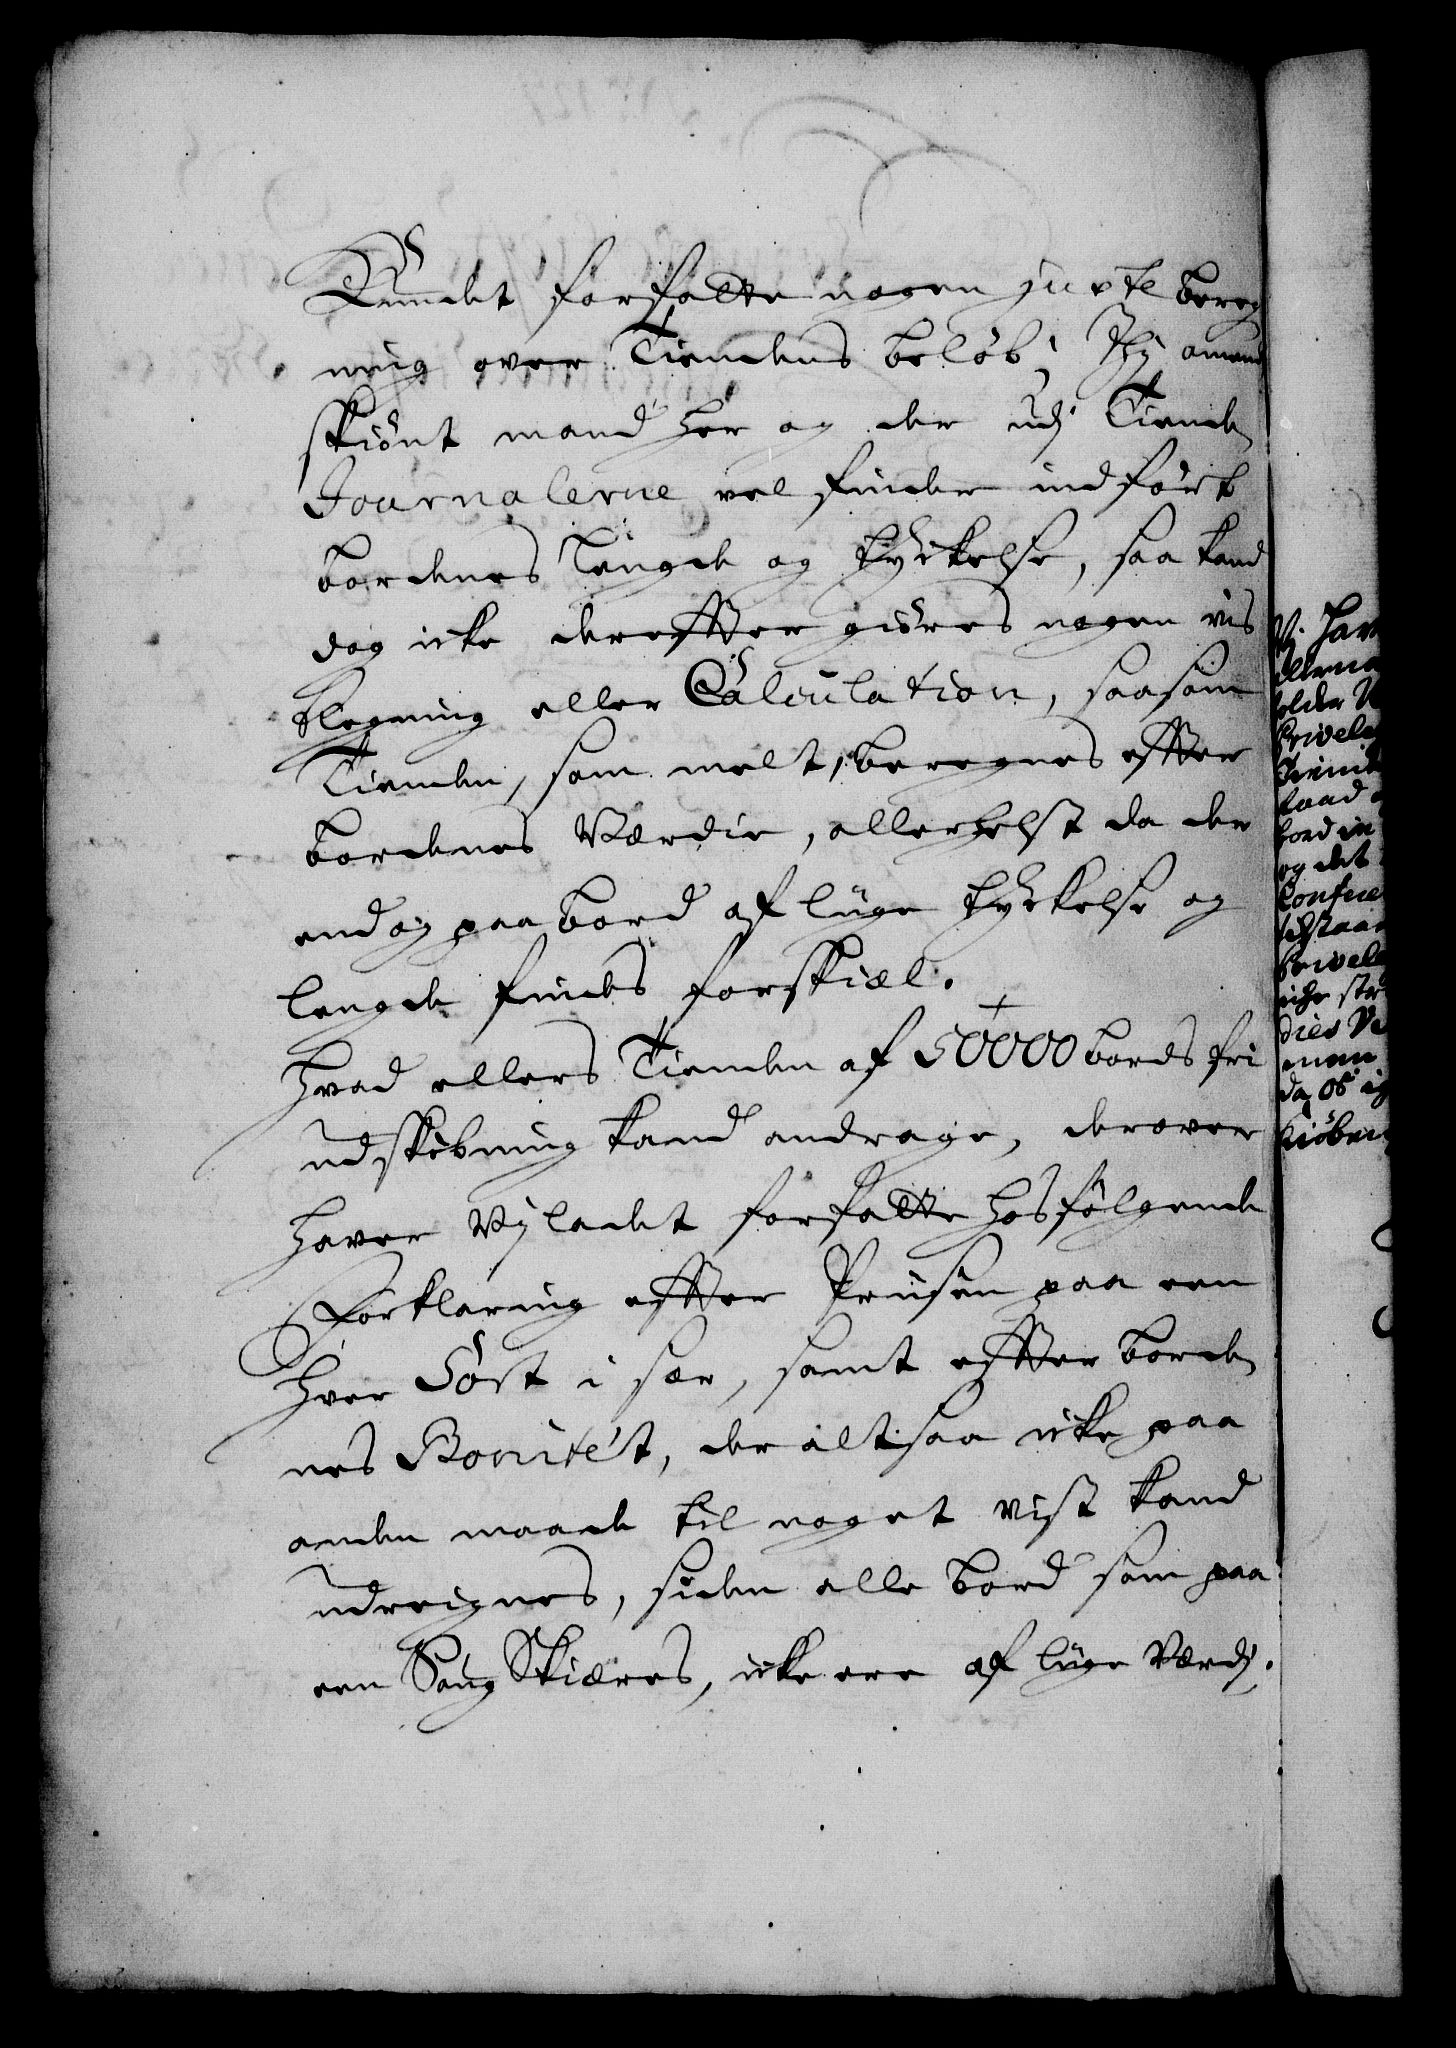 Kundet forfatte nogen juste bereg
ning over Tiendens beløb; Thj omend
skiønt mand her og der udj Tiende
Journalerne vel finder indført
bordenes Lengde og tyckelse, saa kand
dog icke derefter giøres nogen vis
legning eller Calculation, saasom
Tienden, som melt, beregnes efter
bordenes Værdie, allerhelst da der
endog paa bord af lige tyckelse og
lengde findes forskiæl.
Hvad ellers Tienden af 50000 bords fri
udskibning kand andrage, derover
haver Vj ladet forfatte hosfølgende
Forklaring efter Prisen paa een
hver Sort i sær, samt efter borde
nes Bonitet, der altsaa icke paa
anden maade til noget vist kand
udreignes, siden alle bord som paa
een Saug Skiæres, icke ere af lige Værdj.
Vj
holder
Privele
Tiend
bord
og det
Confir
Privele
da os